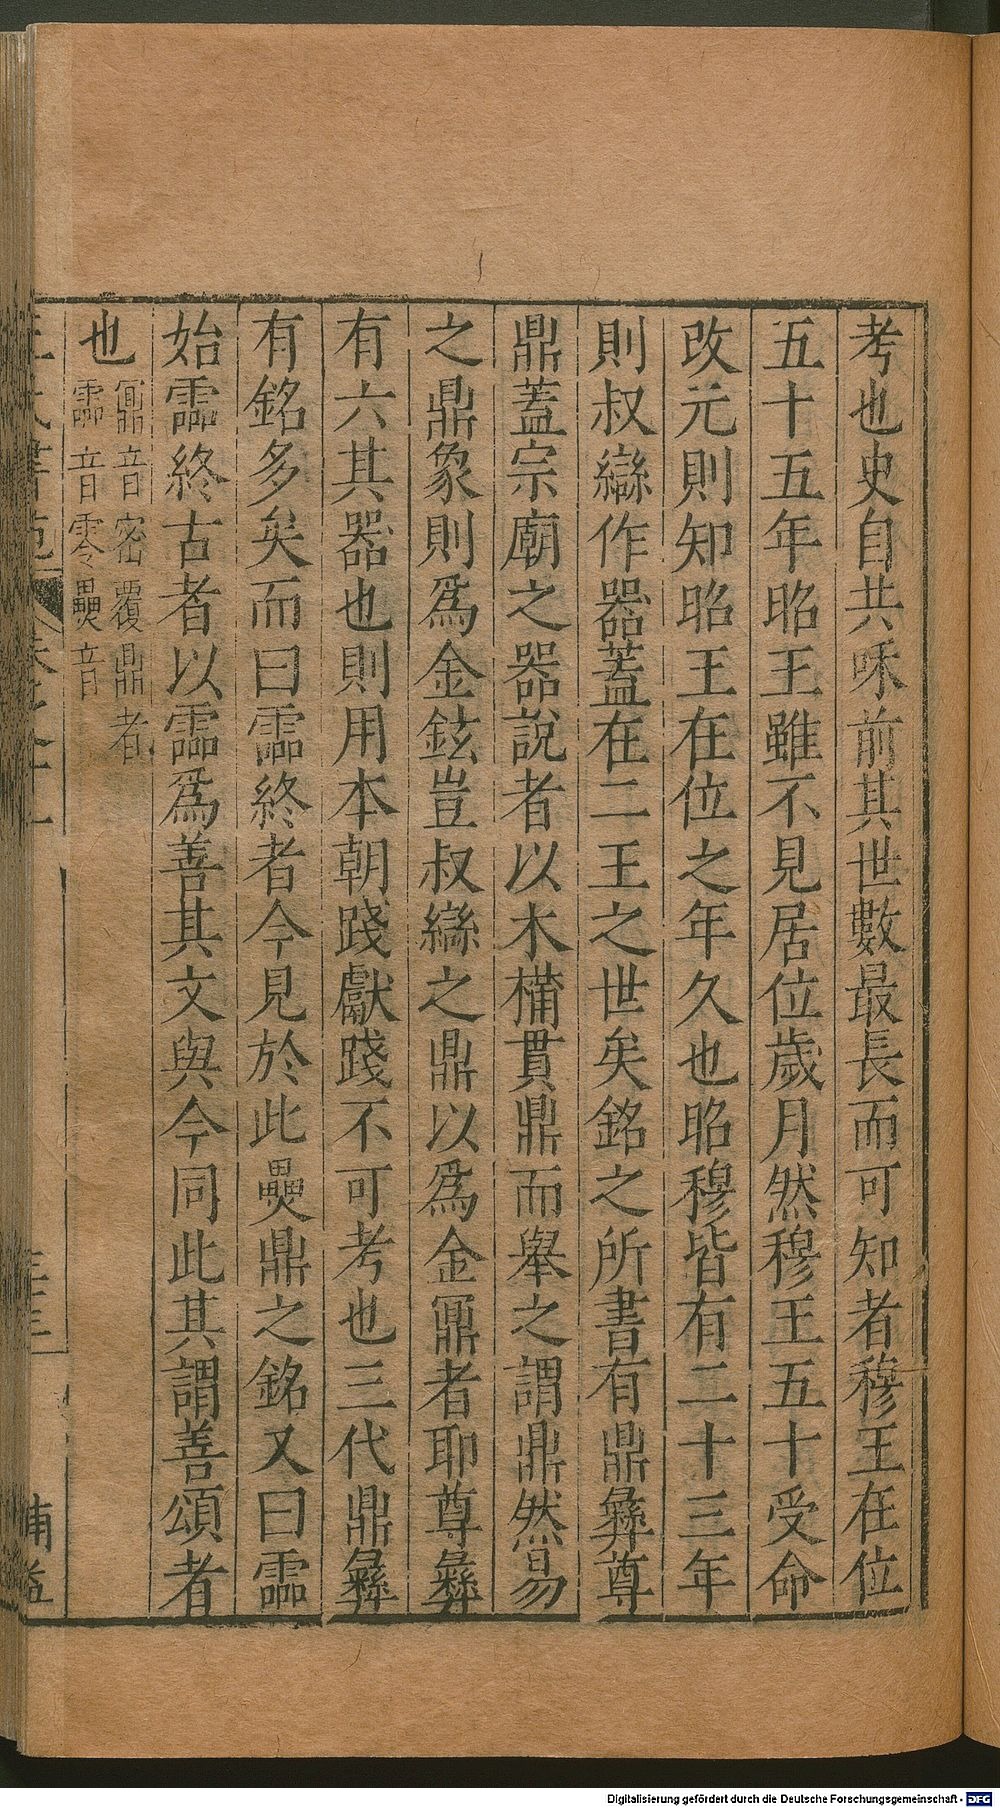 考也史自共和前其世數最長而可知者穆王在位
五十五年昭王雖不見居位歲月然穆王五十受命
改元則知昭王在位之年久也昭穆皆有二十三年
則叔䜌作器蓋在二王之世矣銘之所書有鼎彝尊
鼎蓋宗廟之器說者以木橫貫鼎而舉之謂鼎然易
之鼎象則為金鉉豈叔䜌之鼎以為金鼏者耶尊彝
有六其器也則用本朝踐獻踐不可考也三代鼎彝
有銘多矣而曰霝終者今見於此㷠鼎之銘又曰霝
始霝終古者以霝為善其文與今同此其謂善頌者
也
鼏音密覆鼎者
霝音零㷠音